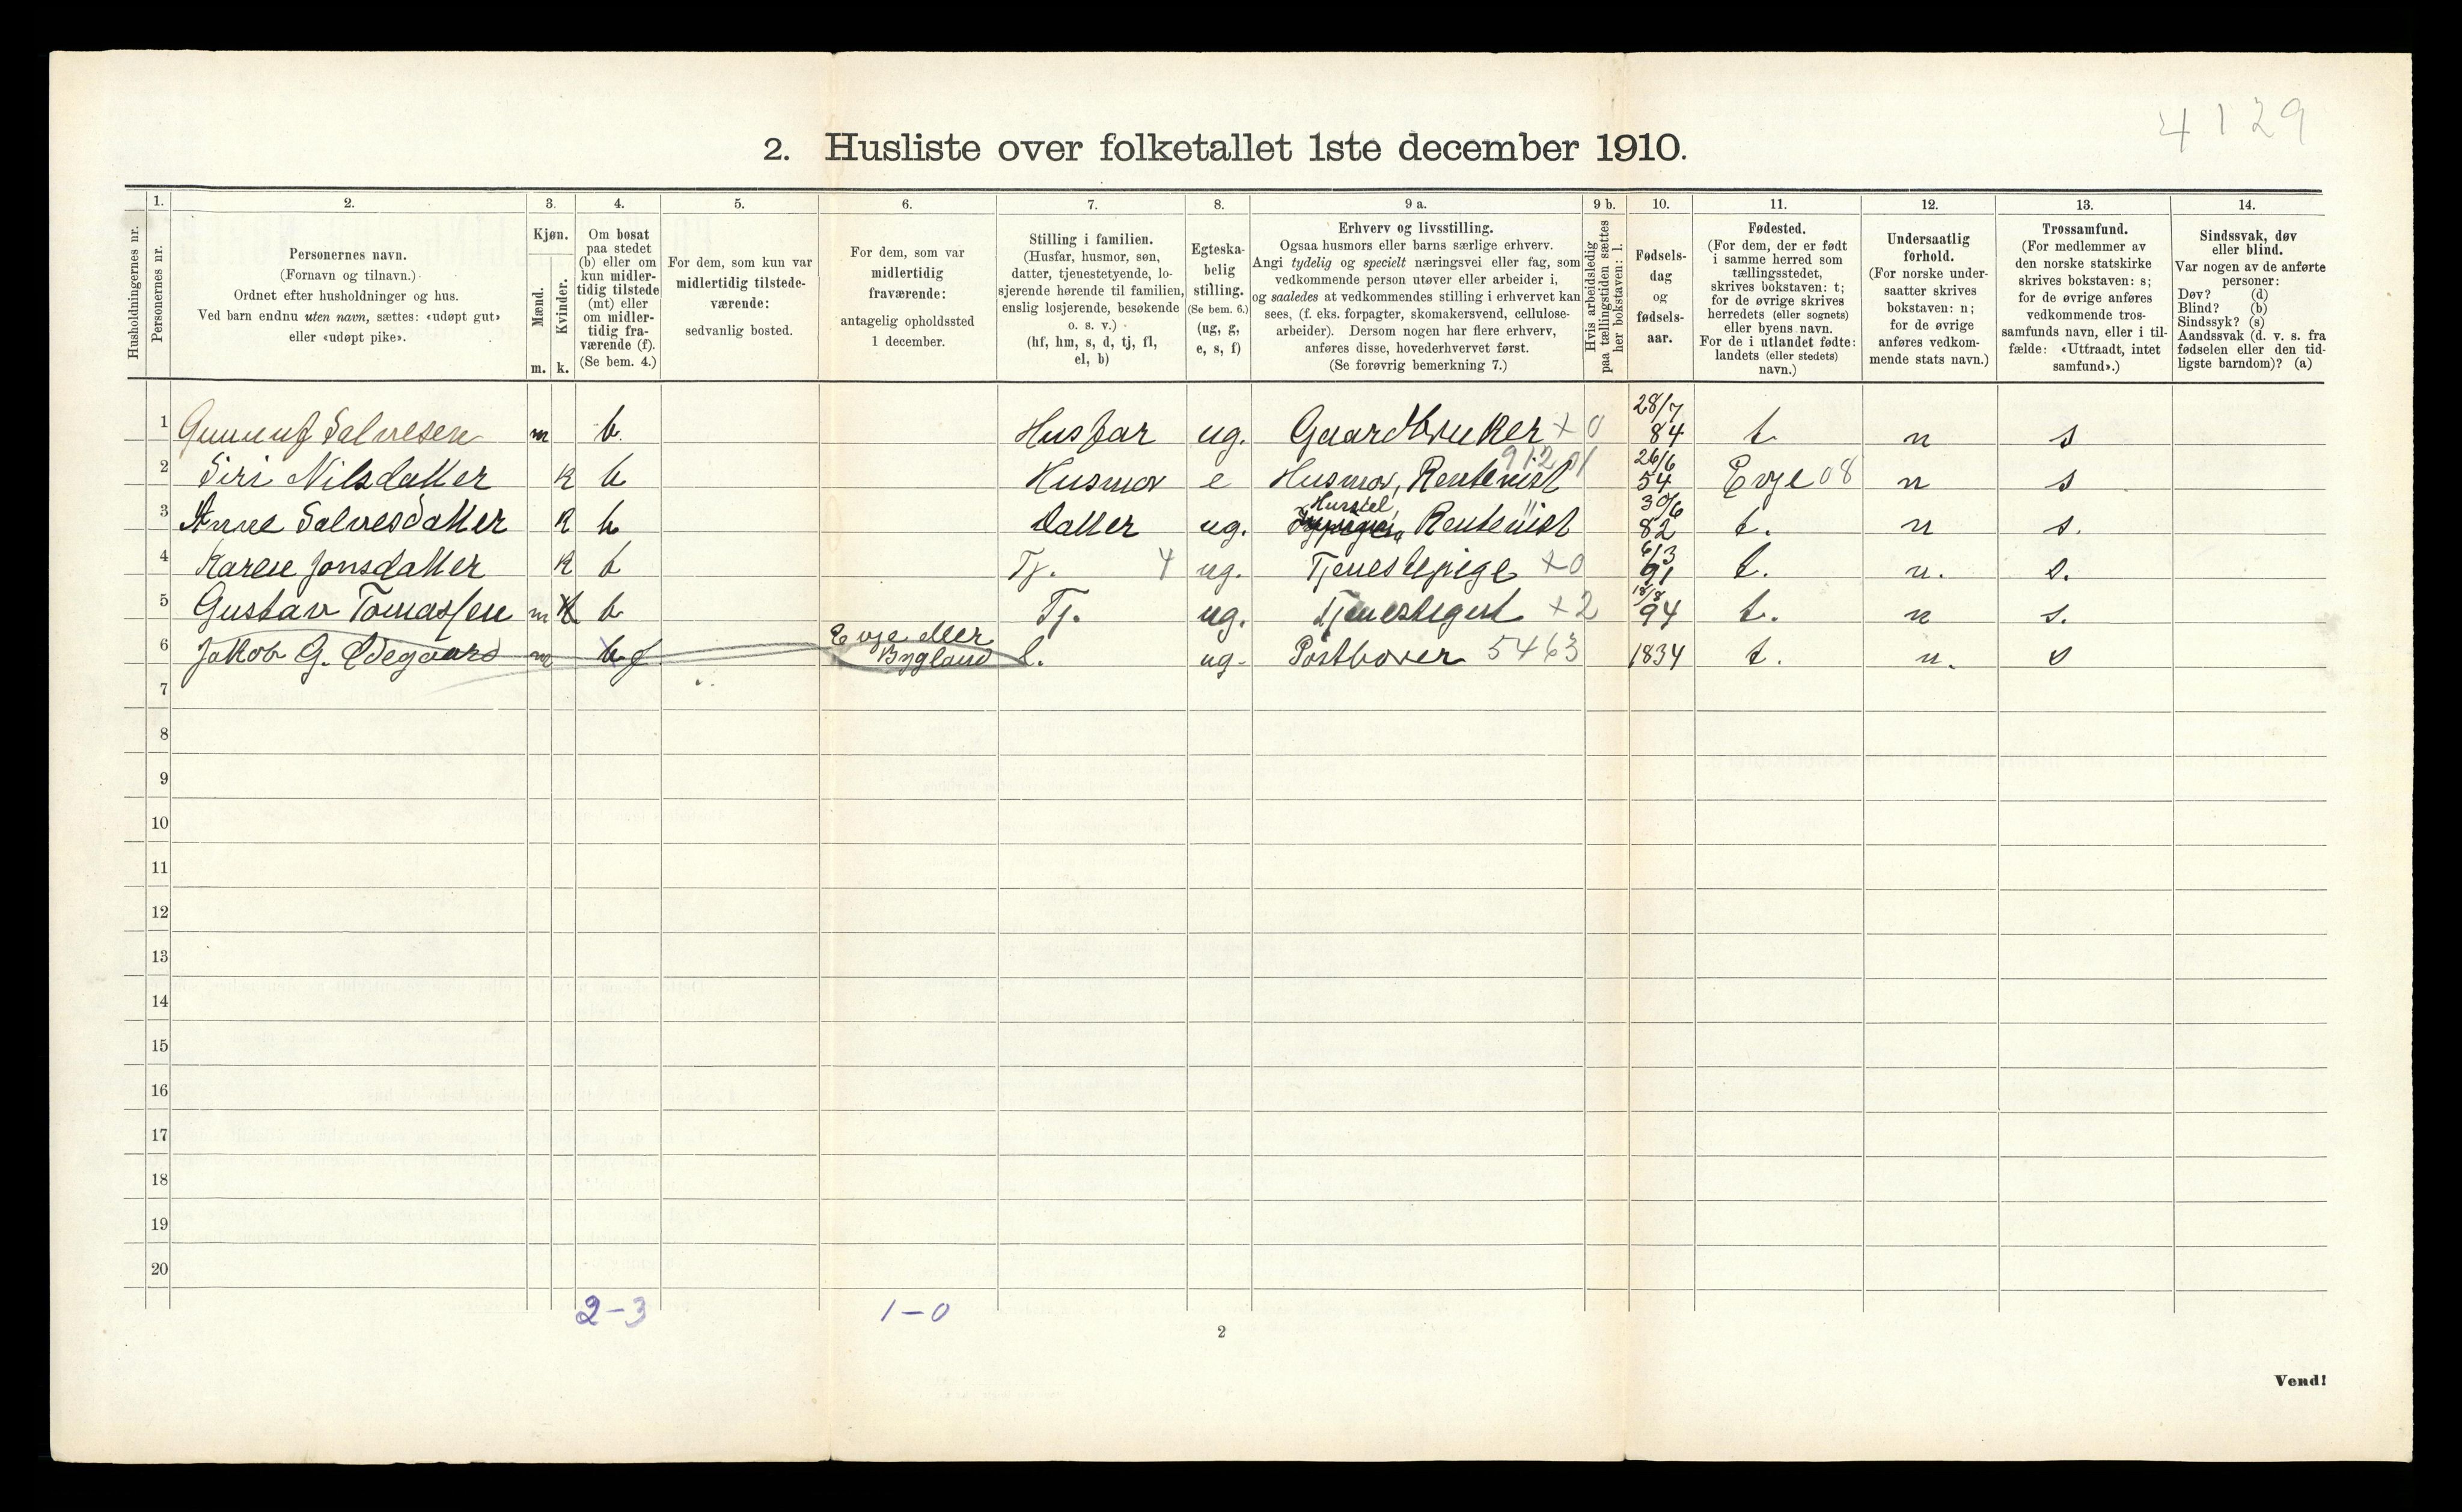 4129
2. Husliste over folketallet 1ste december 1910.
Husholdningernes nr.
1. Personernes nr.
2. Personernes navn.
(Fornavn og tilnavn.)
Ordnet efter husholdninger og hus.
Ved barn endnu uten navn, sættes: «udøpt gut»
eller «udøpt pike».
3. Kjøn.
Mænd. m.
Kvinder. k.
4. Om bosat
paa stedet
(b) eller om
kun midler-
tidig tilstede
(mt) eller
om midler-
tidig fra-
værende (f).
(Se bem. 4.)
5. For dem, som kun var
midlertidig tilstede-
værende:
sedvanlig bosted.
6. For dem, som var
midlertidig
fraværende:
antagelig opholdssted
1 december.
7. Stilling i familien.
(Husfar, husmor, søn,
datter, tjenestetyende, lo-
sjerende hørende til familien,
enslig losjerende, besøkende
o. s. v.)
(hf, hm, s, d, tj, fl,
el, b)
8. Egteska-
belig
stilling.
(Se bem. 6.)
(ug, g,
e, s, f)
9 a. Erhverv og livsstilling.
Ogsaa husmors eller barns særlige erhverv.
Angi tydelig og specielt næringsvei eller fag, som
vedkommende person utøver eller arbeider i,
og saaledes at vedkommendes stilling i erhvervet kan
sees, (f. eks. forpagter, skomakersvend, cellulose-
arbeider). Dersom nogen har flere erhverv,
anføres disse, hovederhvervet først.
(Se forøvrig bemerkning 7.)
9 b. Hvis arbeidsledig
paa tællingstiden sættes
her bokstaven: l.
10. Fødsels-
dag
og
fødsels-
aar.
11. Fødested.
(For dem, der er født
i samme herred som
tællingsstedet,
skrives bokstaven: t;
for de øvrige skrives
herredets (eller sognets)
eller byens navn.
For de i utlandet fødte:
landets (eller stedets)
navn.)
12. Undersaatlig
forhold.
(For norske under-
saatter skrives
bokstaven: n;
for de øvrige
anføres vedkom-
mende stats navn.)
13. Trossamfund.
(For medlemmer av
den norske statskirke
skrives bokstaven: s;
for de øvrige anføres
vedkommende tros-
samfunds navn, eller i til-
fælde: «Uttraadt, intet
samfund».)
14. Sindssvak, døv
eller blind.
Var nogen av de anførte
personer:
Døv? (d)
Blind? (b)
Sindssyk? (s)
Aandssvak (d. v. s. fra
fødselen eller den tid-
ligste barndom)? (a)
1 Gunnuf Salvesen m b. Husfar ug. Gaardbruker x 0 28/7 84 t. n s
2 Siri Nilsdatter k b Husmor e Husmor, Rentenist 912 01 26/6 54 Evje 08 n s
3 Anne Salvesdatter k b Datter ug. Husstel, Rentenist " 30/6 82 t. n s.
4 Karen Jonsdatter k b Tj. 4 ug. Tjenestepige x0 6/3 91 t. n. s.
5 Gustav Tomassen m b Tj. ug. Tjenestegut x2 94 t. n s.
6 Jakob G. Ødegaard m b f Evje eller Bygland l. ug. Postbærer 5463 1834 t. n. s
7
8
9
10
11
12
13
14
15
16
17
18
19
20
2-3 1-0
2
Vend!